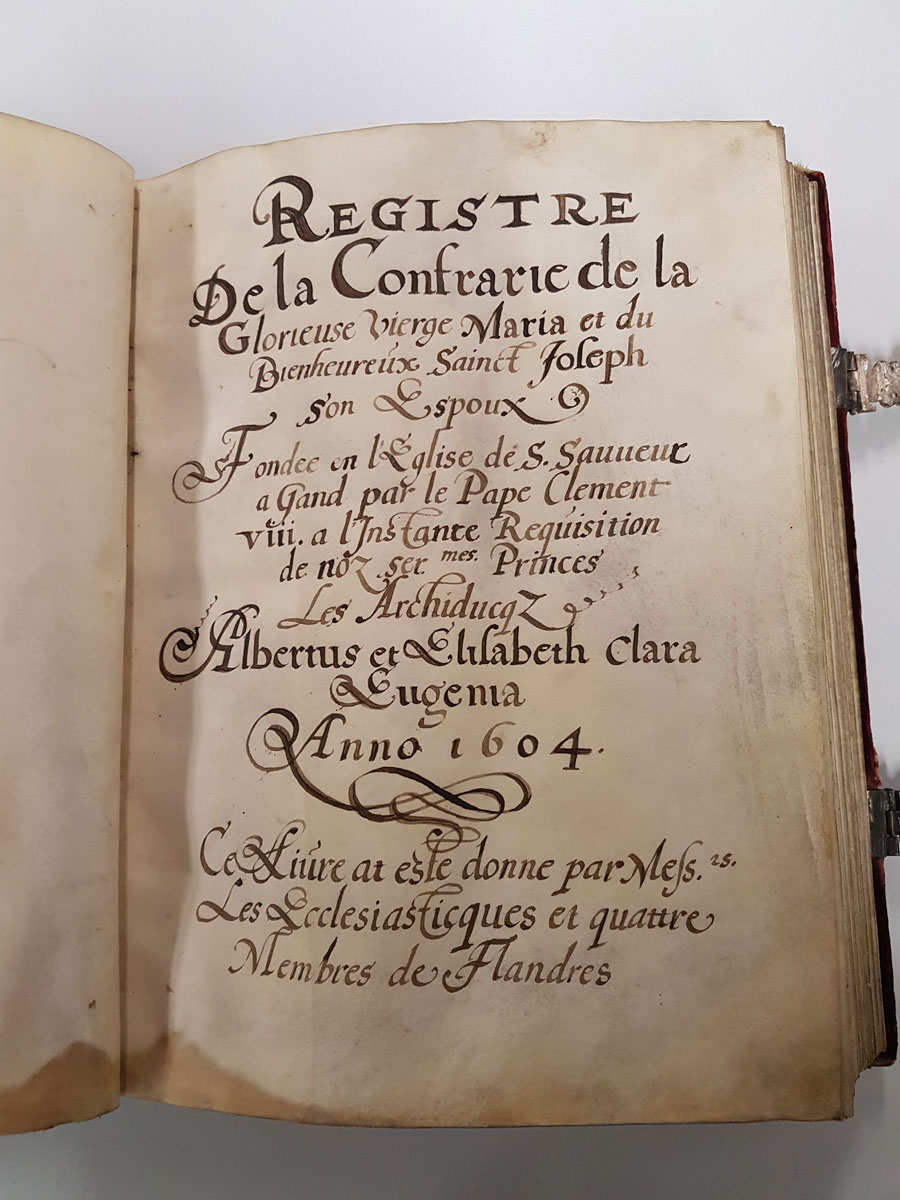 REGISTRE
De la Confrarie de la
Glorieuse Vierge Maria et du
Bienheureux Sainct Joseph
son Espoux
Fondee en l'Eglise de S. Sauueur
a Gand par le Pape Clement
viii. a l'Instante Requisition
de noz ser.mes. Princes
Les Archiducqz
Albertus et Elisabeth Clara
Eugenia
Anno 1604.
Ce Liure at este donne par Mess.rs.
Les Ecclesiasticques et quattre
Membres de Flandres